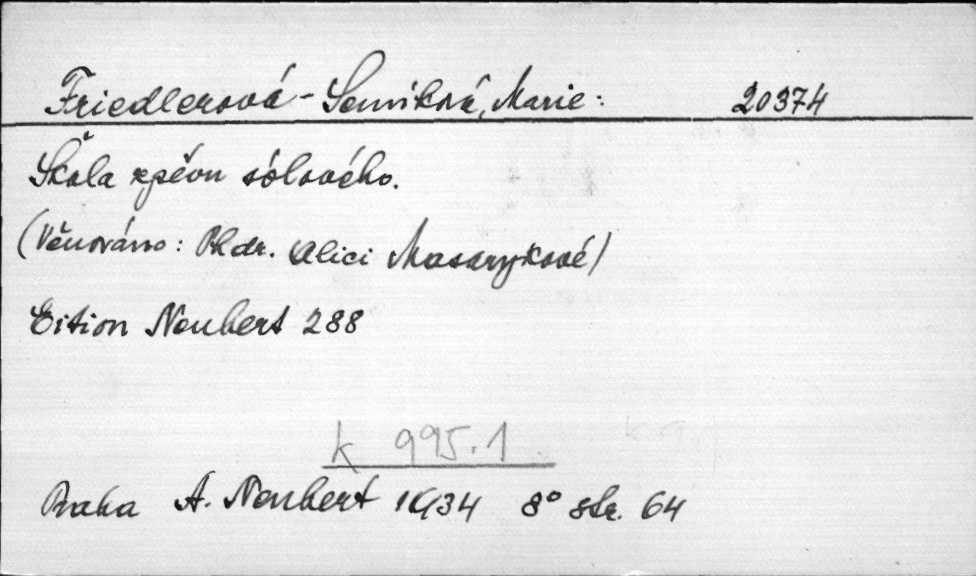 Friedlerová-Semíková, Marie: 20374
Škola zpěvu sólového.
(Věnováno: Phdr. Alici Masarykové)
Eition Neubert 288
k 995.1
Praha A. Neubert 1934 8° str. 64